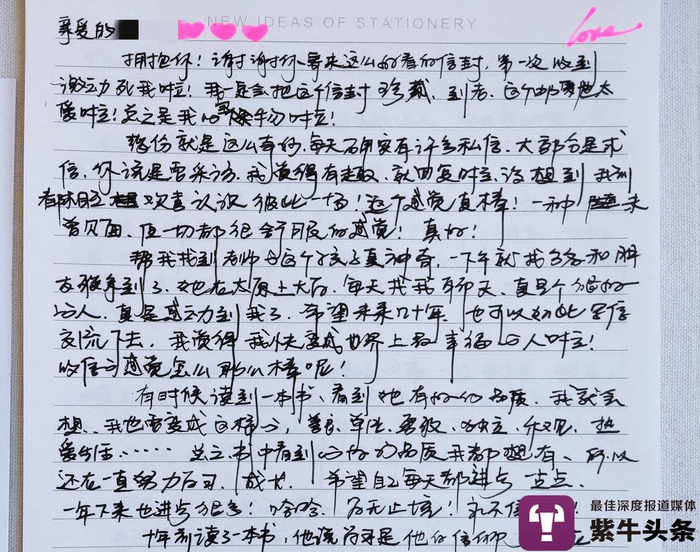 NEW IDEAS OF STATIONERY
亲爱的
Love
拥抱你！谢谢你寄来这么好看的信封，第一次收到
激动死我啦！我一定会把这个信封珍藏，到老，这个邮票也太
爱啦！总之是我的 物啦！
缘份就是这么奇妙，每天确实有许多私信，大部分是求
信，你说是要采访，我觉得有趣，就回复啦，没想到我们
都 欢喜认识彼此一场！这个感觉真棒！一种 未
曾见面，但一切都很舒服的感觉！真好！
帮我找到老师 这个孩子真神奇，一下午就 和朋
友 到了，她在太原上大学，每天找我聊天，真是个很好
的人，真是感动到我了，希望未来几十年，也可以如此写信
交流下去，我觉得我快变成世界上最幸福的人啦！
收信的感觉怎么那么棒呢！
有时候读到一本书，看到她有好的品质，我就会
想，我也要变成这样的，善良、单纯、勇敢、独立、乐观、热
爱生活……总之书中看到的好的品质我都想有，所以
还在一直努力学习、成长，希望自己每天都进步一点点，
一年下来也进步很多！哈哈，学无止境！
十年前读了一本书，他说 是他的信仰
最佳深度报道媒体
紫牛头条